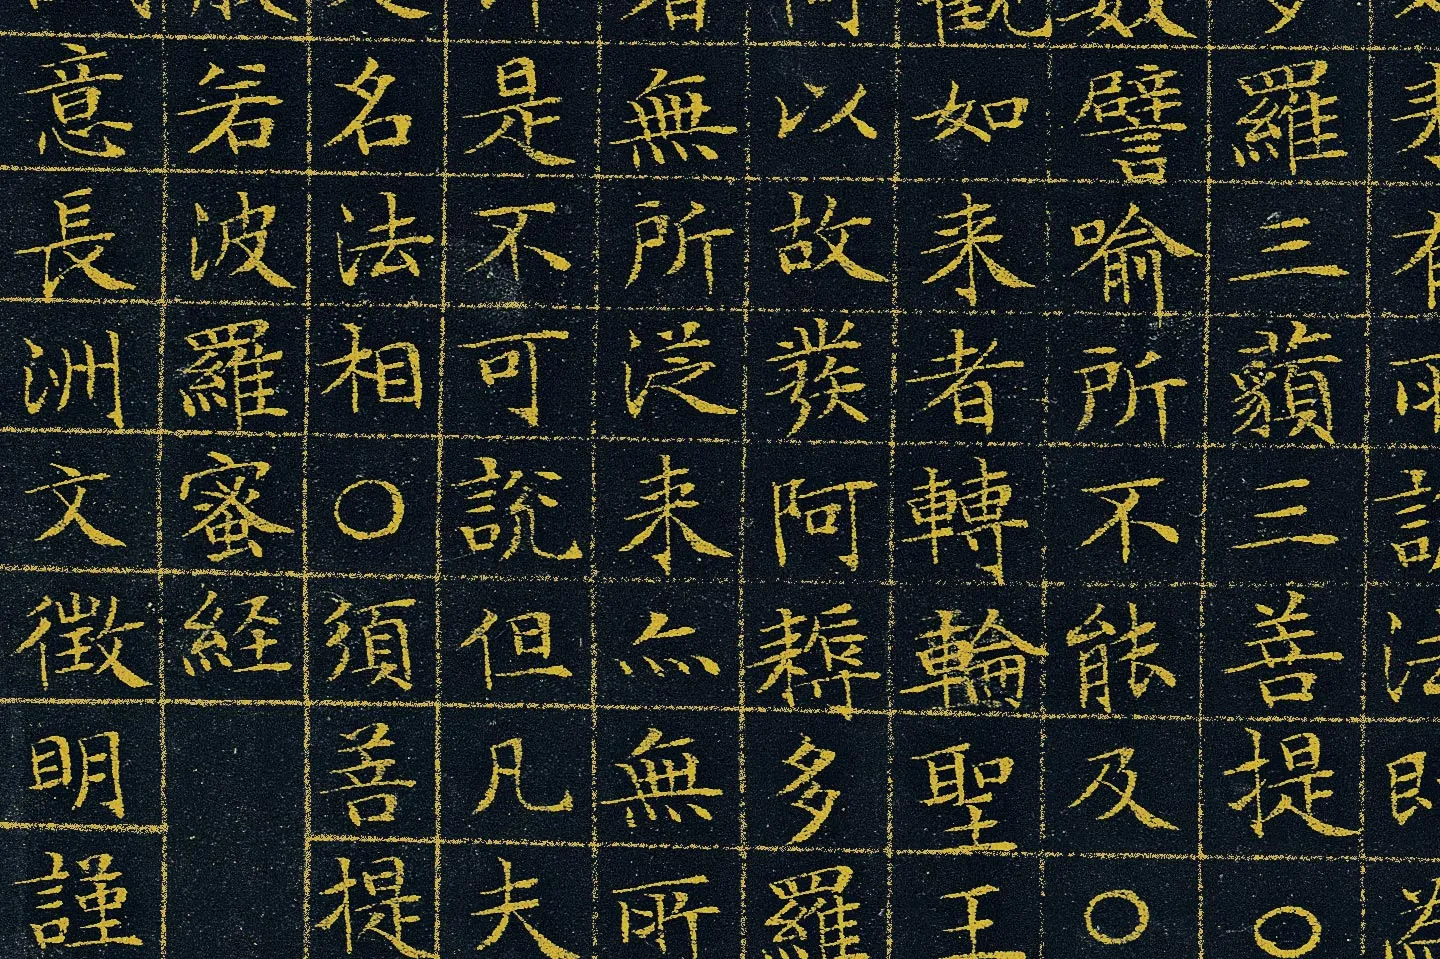 羅三藐三菩提○
譬喻所不能及○
如来者轉輪聖王
以故發阿耨多羅
無所從来亦無所
是不可説但凡夫
名法相○須菩提
若波羅蜜経
意長洲文徵明謹